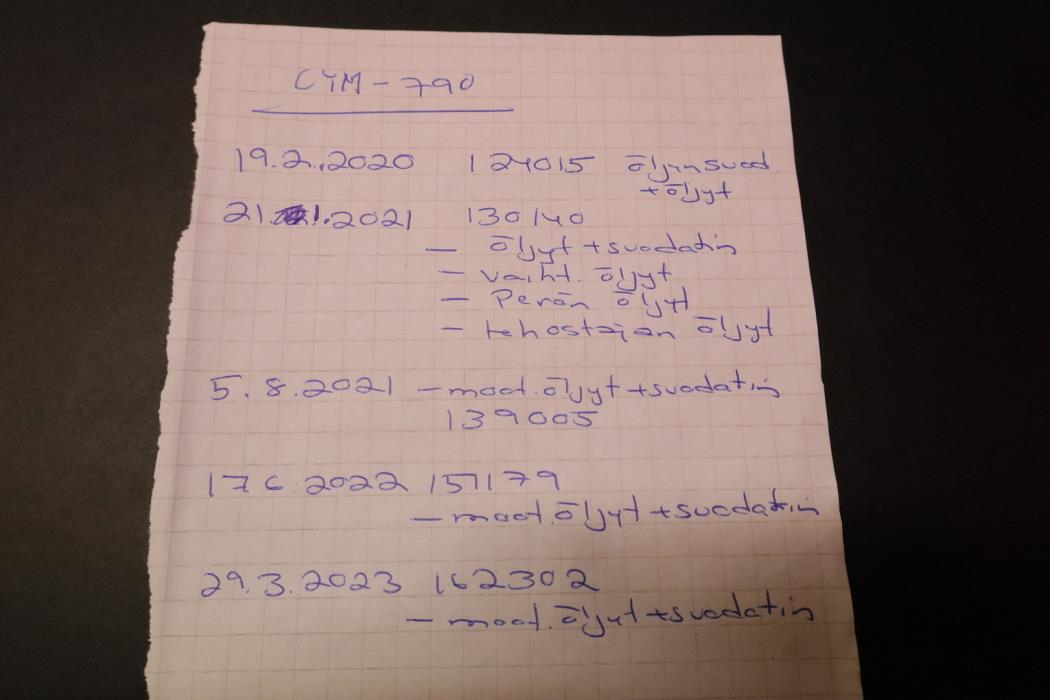 CYM-790
19.2.2020 124015 öljynsuod.
+öljyt
21.1.2021 130140
- öljyt + suodatin
- vaiht. öljyt
- Perän öljyt
- tehostajan öljyt
5.8.2021 - moot.öljyt +suodatin
139005
17 6.2022 157179
- moot.öljyt +suodatin
29.3.2023 162302
- moot.öljyt +suodatin